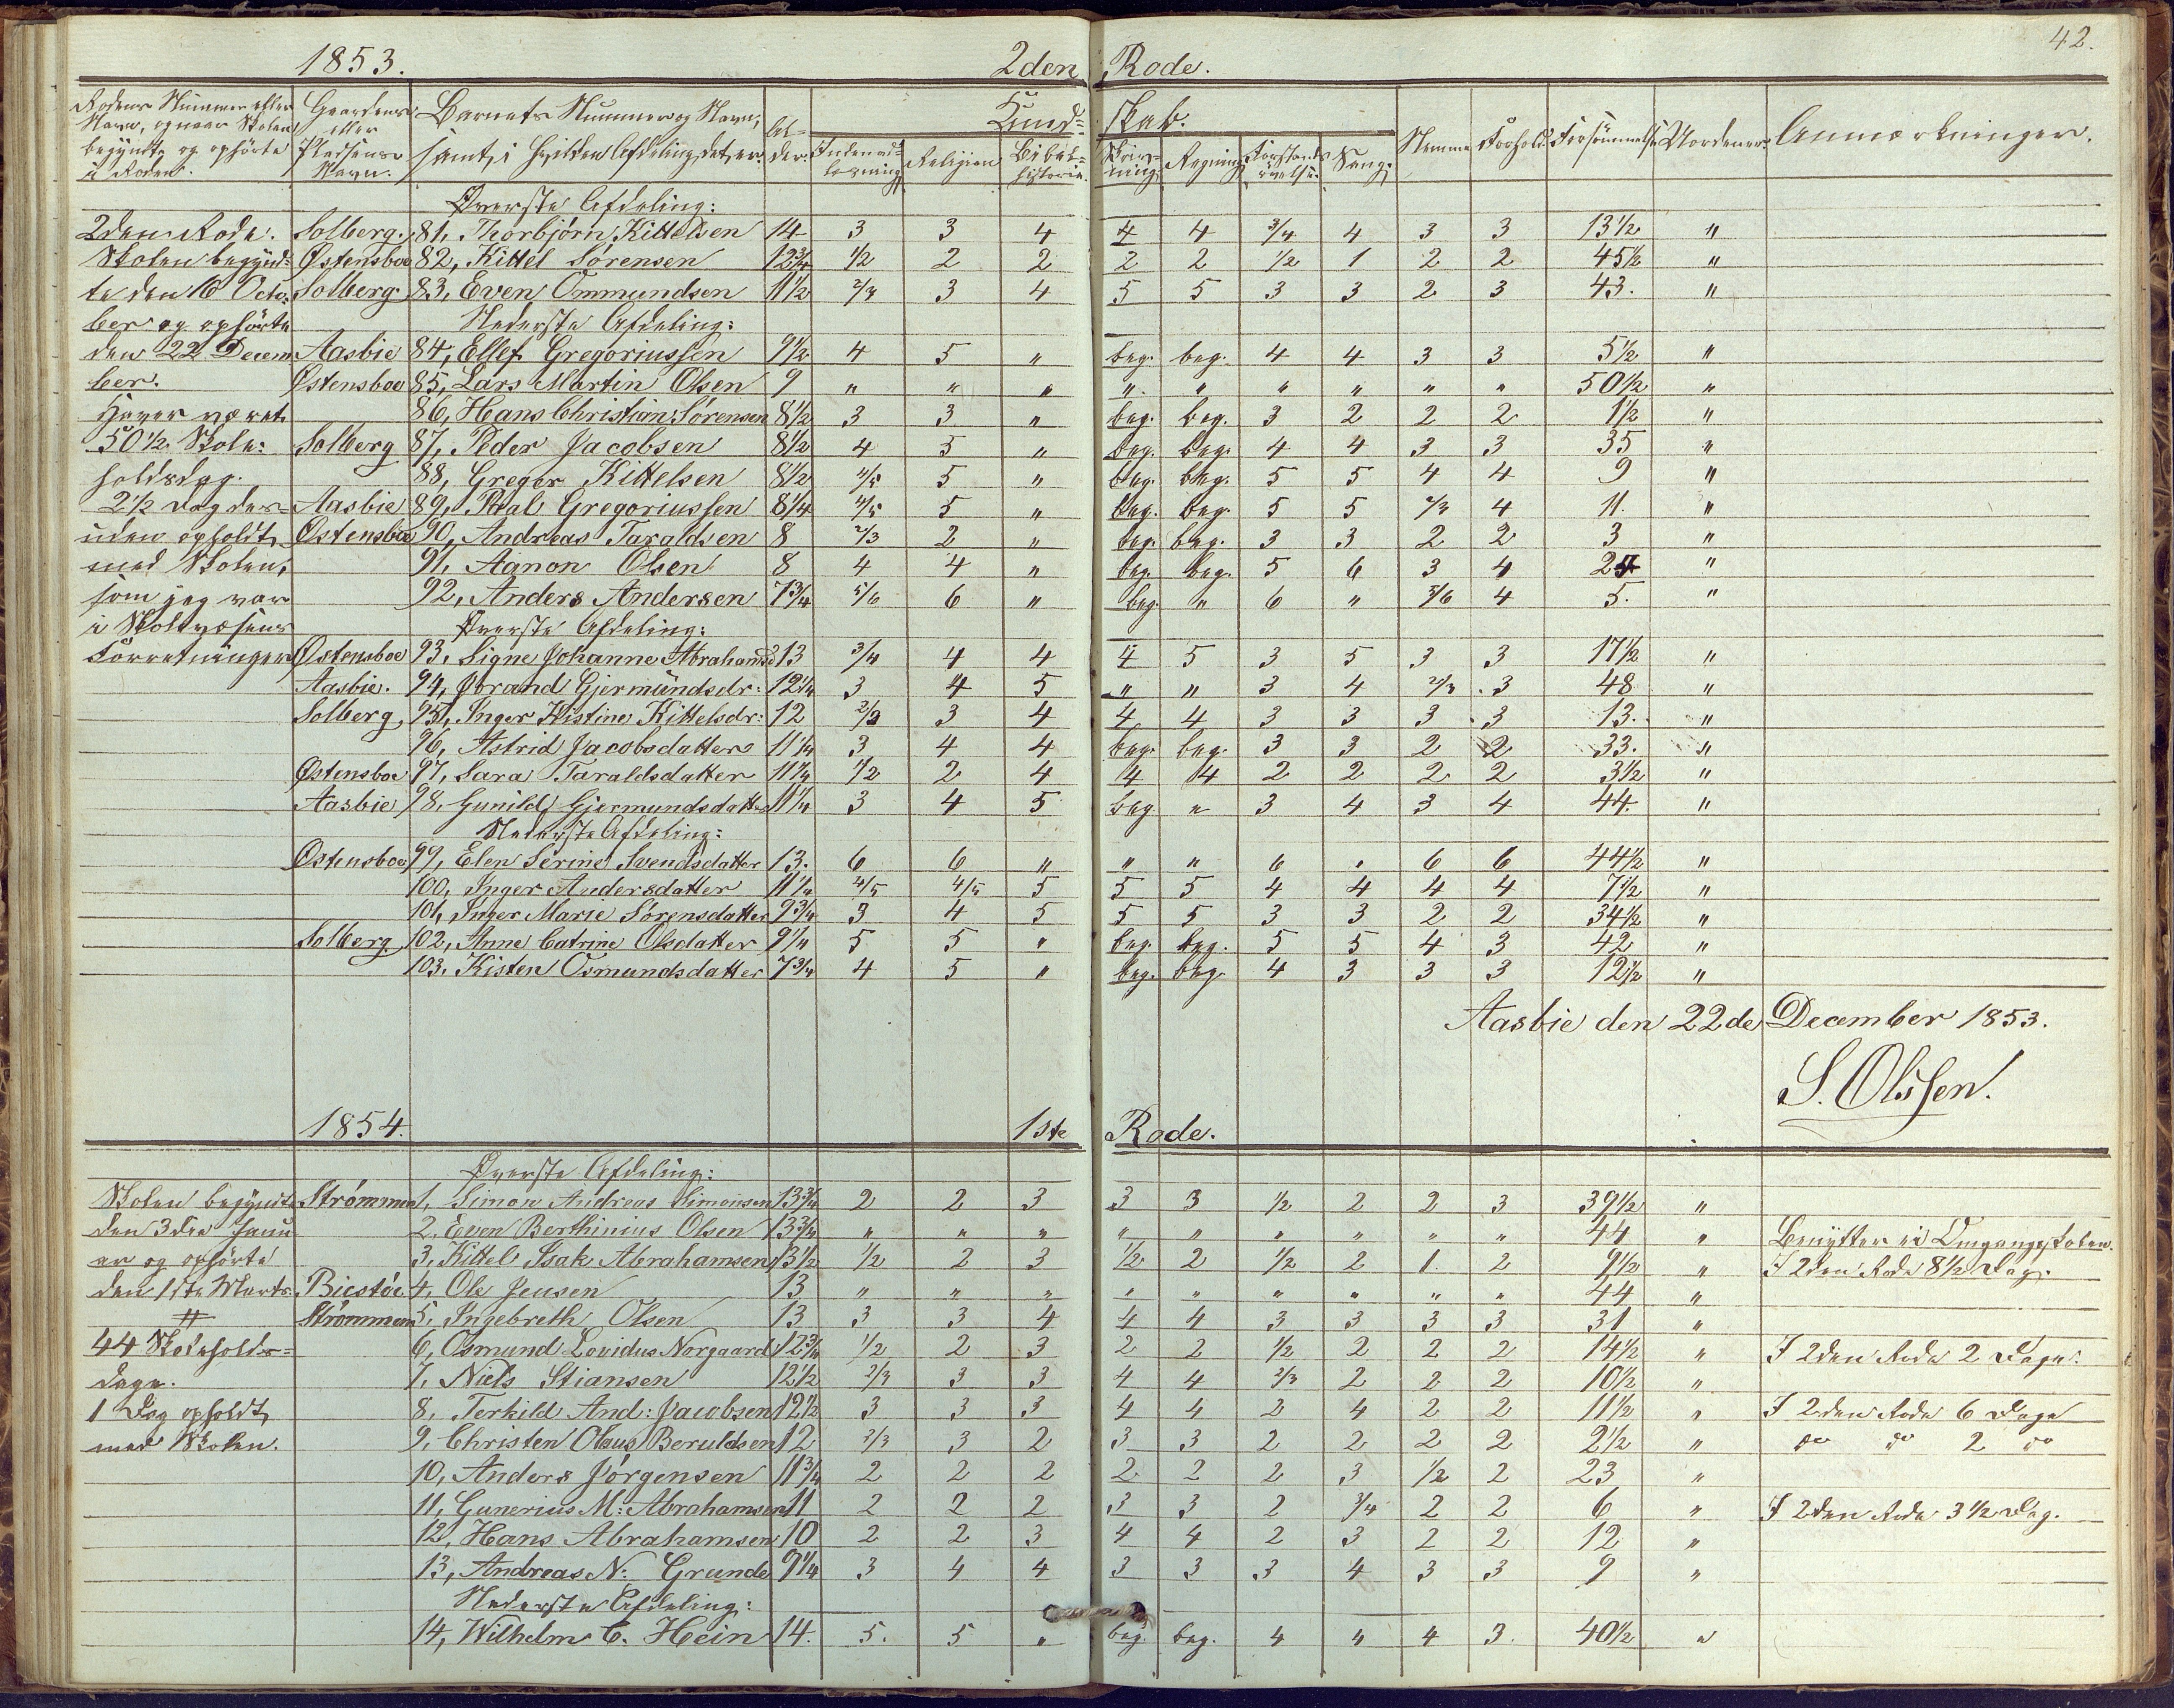 42.
1853. 2den Rode.
Rodens Nummer eller Navn, og naar Skolen begyndte og ophørte i Roden. Gaardens eller Pladsens Navn. Barnets Nummer og Navn, samt i hvilken Afdeling det er. Al-der. Kund- skab. Indenad-læsning Religion Bibel-historie. Skriv-ning Regning Forstands-øvelse Sang. Nemme Forhold Forsømmelse Uordener Anmærkninger.
Øverste Afdeling:
2den Rode. Solberg. 81, Thorbjørn Kittelsen 14 3 3 4 4 4 3/4 4 3 3 13½ "
Skolen begynd- Østensboe 82, Kittel Sørensen 12¾ ½ 2 2 2 2 ½ 1 2 2 45½ "
te den 16 Octo- Solberg 83, Even Ommundsen 11½ 2/3 3 4 5 5 3 3 2 3 43. "
ber og ophørte Nederste Afdeling:
den 22 Decem Aasbie 84, Ellef Gregoriussen 9½ 4 5 " beg. beg. 4 4 3 3 5½ "
ber. Østensboe 85, Lars Martin Olsen 9 " " " " " " " " " 50½ "
Haver været 86, Hans Christian Sørensen 8½ 3 3 " beg. beg. 3 2 2 2 1½ "
50½ Skole- Solberg 87, Peder Jacobsen 8½ 4 5 " beg. beg. 4 4 3 3 35 "
holdsdag. 88, Gregor Kittelsen 8½ 4/5 5 " beg. beg. 5 5 4 4 9 "
2½ Dag des- Aasbie 89, Paal Gregoriussen 8¼ 4/5 5 " beg. beg. 5 5 2/3 4 11. "
uden opholdt Østensboe 90, Andreas Taraldsen 8 2/3 2 " beg. beg. 3 3 2 2 3 "
med Skolen, 91, Aanon Olsen 8 4 4 " beg. beg. 5 6 3 4 "
som jeg var 92, Anders Andersen 7¾ 5/6 6 " beg. " 6 " 5/6 4 5. "
i Skolevæsens Øverste Afdeling:
Forretninger Østensboe 93, Signe Johanne Abrahamsd 13 3/4 4 4 4 5 3 5 3 3 17½ "
Aasbie. 94, Jørand Gjermundsdr: 12¼ 3 4 5 " " 3 4 2/3 3 48 "
Solberg 95, Inger Kistine Kittelsdr: 12 2/3 3 4 4 4 3 3 3 3 13. "
96, Astrid Jacobsdatter 11¼ 3 4 4 beg. beg. 3 3 2 2 33. "
Østensboe 97, Sara Taraldsdatter 11¼ ½ 2 4 4 4 2 2 2 2 3½ "
Aasbie 98, Gunild Gjermundsdatter 11¼ 3 4 5 beg " 3 4 3 4 44. "
Nederste Afdeling:
Østensboe 99, Elen Serine Svendsdatter 13. 6 6 " " " 6 " 6 6 44½ "
100, Inger Andersdatter 11¼ 4/5 4/5 5 5 5 4 4 4 4 7½ "
101, Inger Marie Sørensdatter 9¾ 3 4 5 5 5 3 3 2 2 34½ "
Solberg 102, Anne Catrine Olsdatter 9¼ 5 5 " beg. beg. 5 5 4 3 42 "
103, Kisten Osmundsdatter 7¾ 4 5 " beg. beg. 4 3 3 3 12½ "
Aasbie den 22de December 1853.
S. Olssen.
1854. 1ste Rode.
Øverste Afdeling:
Skolen begyndte Strømmen 1, Simon Andreas Simonsen 13¾ 2 2 3 3 3 ½ 2 2 3 39½ "
den 3die Janu 2, Even Berthinius Olsen 13¾ " " " " " " " " " 44 " Benytter ei Omgangsskolen.
ar og ophørte 3, Kittel Isak Abrahamsen 13½ ½ 2 3 ½ 2 ½ 2 1. 2 9½ " I 2den Rode 8½ Dag.
den 1ste Marts. Biestøe 4, Ole Jensen 13 " " " " " " " " " 44 "
Strømmen 5, Ingebreth Olsen 13 3 3 4 4 4 3 3 3 3 31 "
44 Skoleholds- 6, Osmund Lovidus Norgaard 12¾ ½ 2 3 2 2 ½ 2 2 2 14½ " I 2den Rode 2 Dage.
dage. 7, Niels Stiansen 12½ 2/3 3 3 4 4 2/3 2 2 2 10½ "
1 Dag opholdt 8, Terkild And: Jacobsen 12½ 3 3 3 4 4 2 4 2 2 11½ " I 2den Rode 6 Dage
med Skolen. 9, Christen Olaus Beruldsen 12 2/3 3 2 3 3 2 2 2 2 2½ " do do 2 do
10, Anders Jørgensen 11¾ 2 2 2 2 2 2 3 ½ 2 23 "
11, Gunerius M: Abrahamsen 11 2 2 2 3 3 2 3/4 2 2 6 " I 2den Rode 3½ Dag.
12, Hans Abrahamsen 10 2 2 3 4 4 2 3 2 2 12 "
13, Andreas N: Grunde 9¼ 3 4 4 3 3 3 4 3 3 9 "
Nederste Afdeling:
14, Wilhelm C. Hein 14. 5. 5 " beg. beg. 4 4 4 3. 40½ "